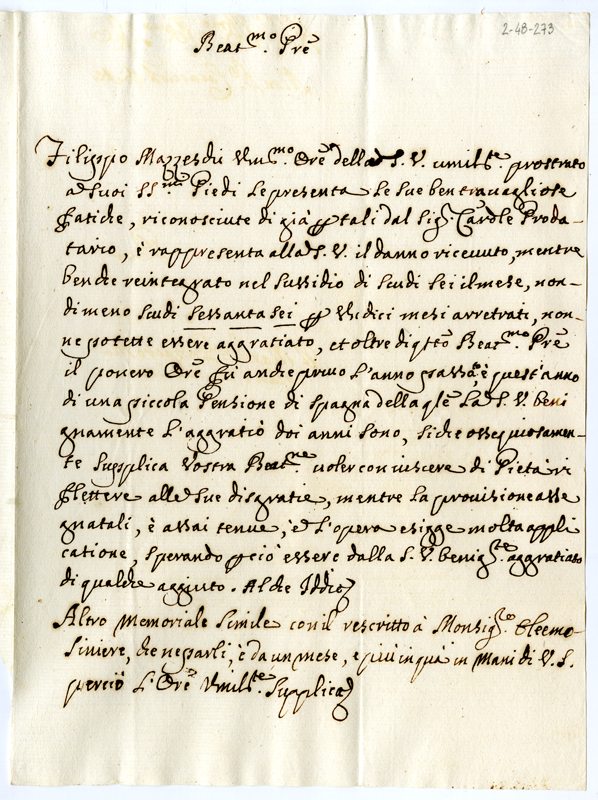 2-48-273
Beat.mo Pre
Filippo Mazzeschi Um.mo Ore della S. V. umilte. prostrato
a suoi SS.mi Piedi Le presenta Le sue ben travagliose
fatiche, riconosciute di già p tali dal Sig. Card.le Proda-
tario, è rappresenta alla S. V. il danno ricevuto, mentre
benche reintegrato nel sussidio di scudi sei il mese, non-
dimeno scudi sessanta sei p Undici mesi arretrati, non-
ne potette essere aggratiato, et oltre di qsto Beat.mo Pre
il povero Ore fù anche privo L'anno passato, è quest'anno
di una piccola Pensione di Spagna della qle La S. V. beni
gnamente L'aggratiò doi anni sono, siche ossequiosamen-
te supplica Vostra Beat.ne voler con viscere di Pietà ri
flettere alle sue disgratie, mentre la provisione asse
gnatali, è assai tenue, è L'opera esigge molta appli
catione, sperando pciò essere dalla S. V. benig.te aggratiato
di qualche aggiuto. Al che Iddio
Altro Memoriale simile con il rescritto à Monsig.ro Eleemo-
siniere, che ne parli, è da un mese, e più in quà in Mani di V. S.
perciò L'Ore Umil.te Supplica